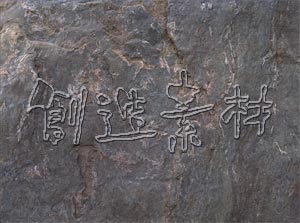 創造素材